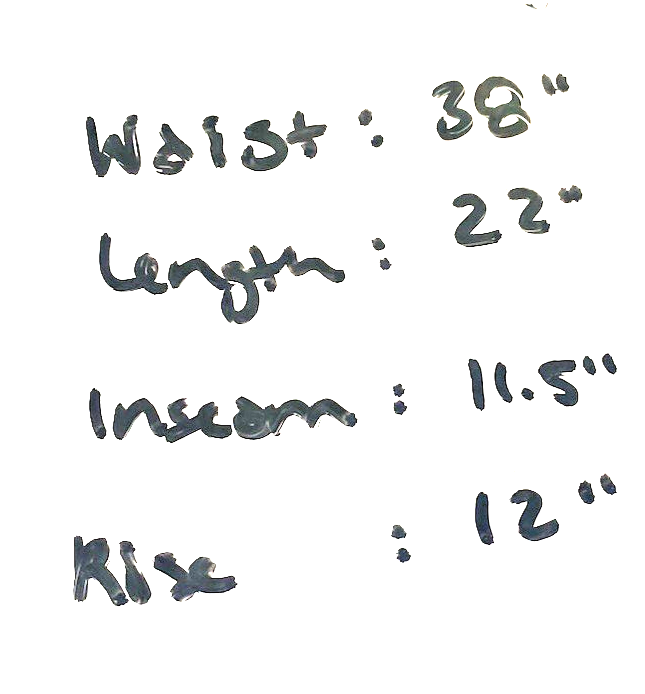 Waist : 38"
Length : 22"
Inseam : 11.5"
Rise : 12"